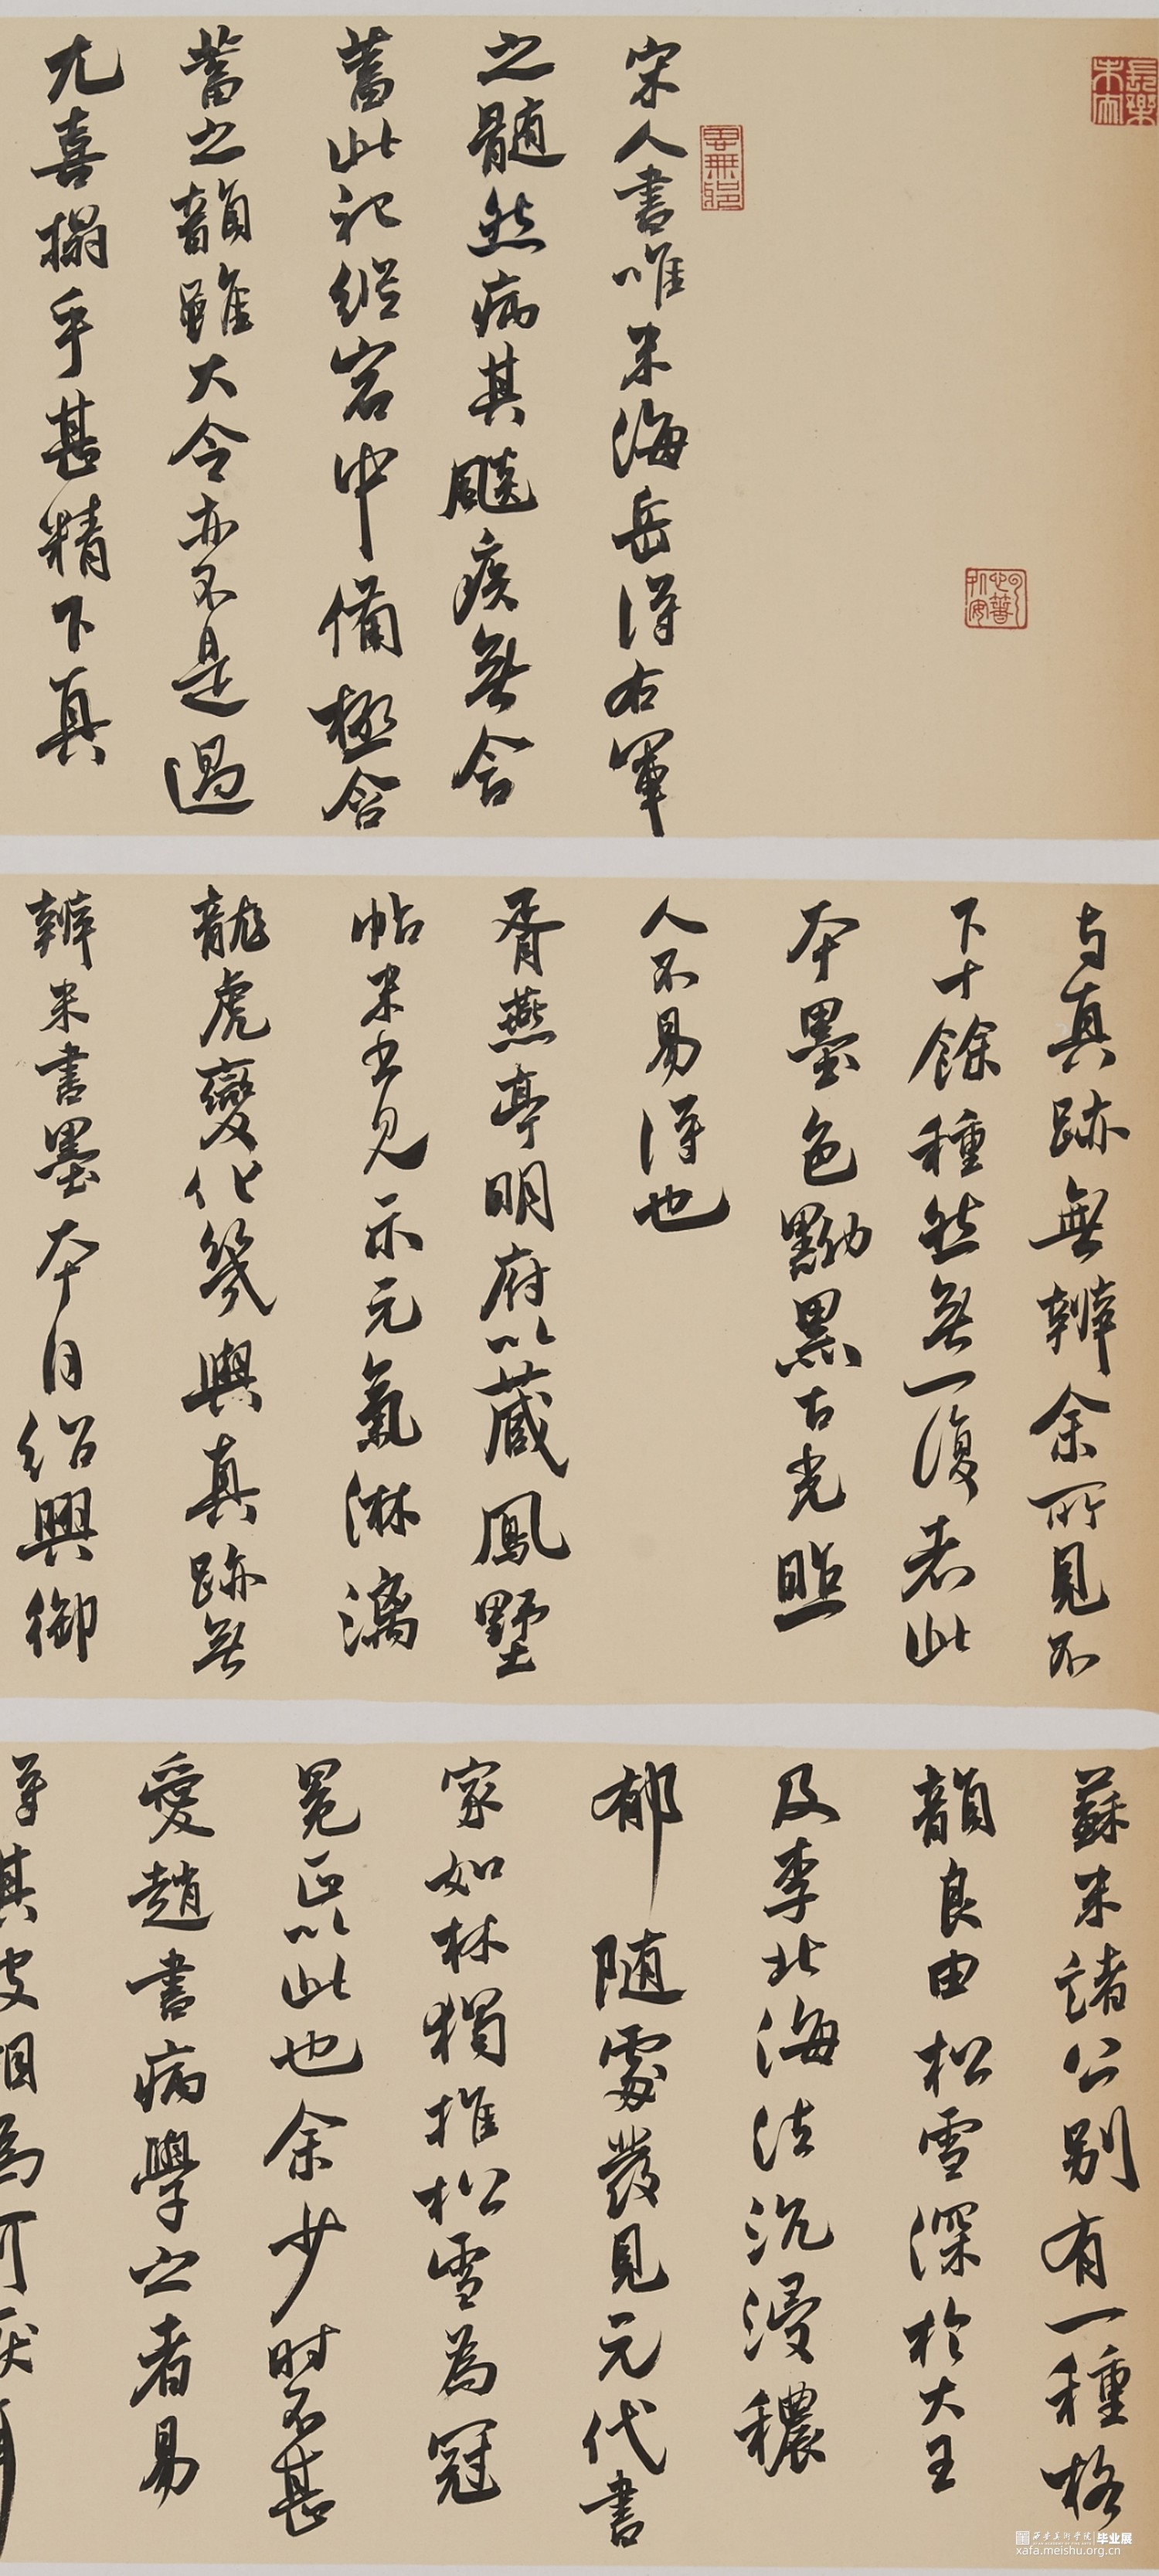 長樂未央
思無邪
宋人書唯米海岳得右軍
之髓然病其飈疾無含
蓄此祀縱宕中備極含
蓄之韻雖大令亦不是過
尤喜搨手甚精下真
与真跡無辨余所見不
下十餘種然無一復者此
本墨色黝黑古光照
人不易得也
胥燕亭明府以藏鳳墅
帖米書見示元氣淋漓
龍虎變化幾與真跡無
辨米書墨本自紹興御
蘇米諸公別有一種格
韻良由松雪深於大王
及李北海法沉浸穠
郁随處發見元代書
家如林獨推松雪為冠
冕正以此也余少时不甚
愛趙書病學之者易
得其皮相為可厭
西安美術學院 毕业展
xafa.meishu.org.cn